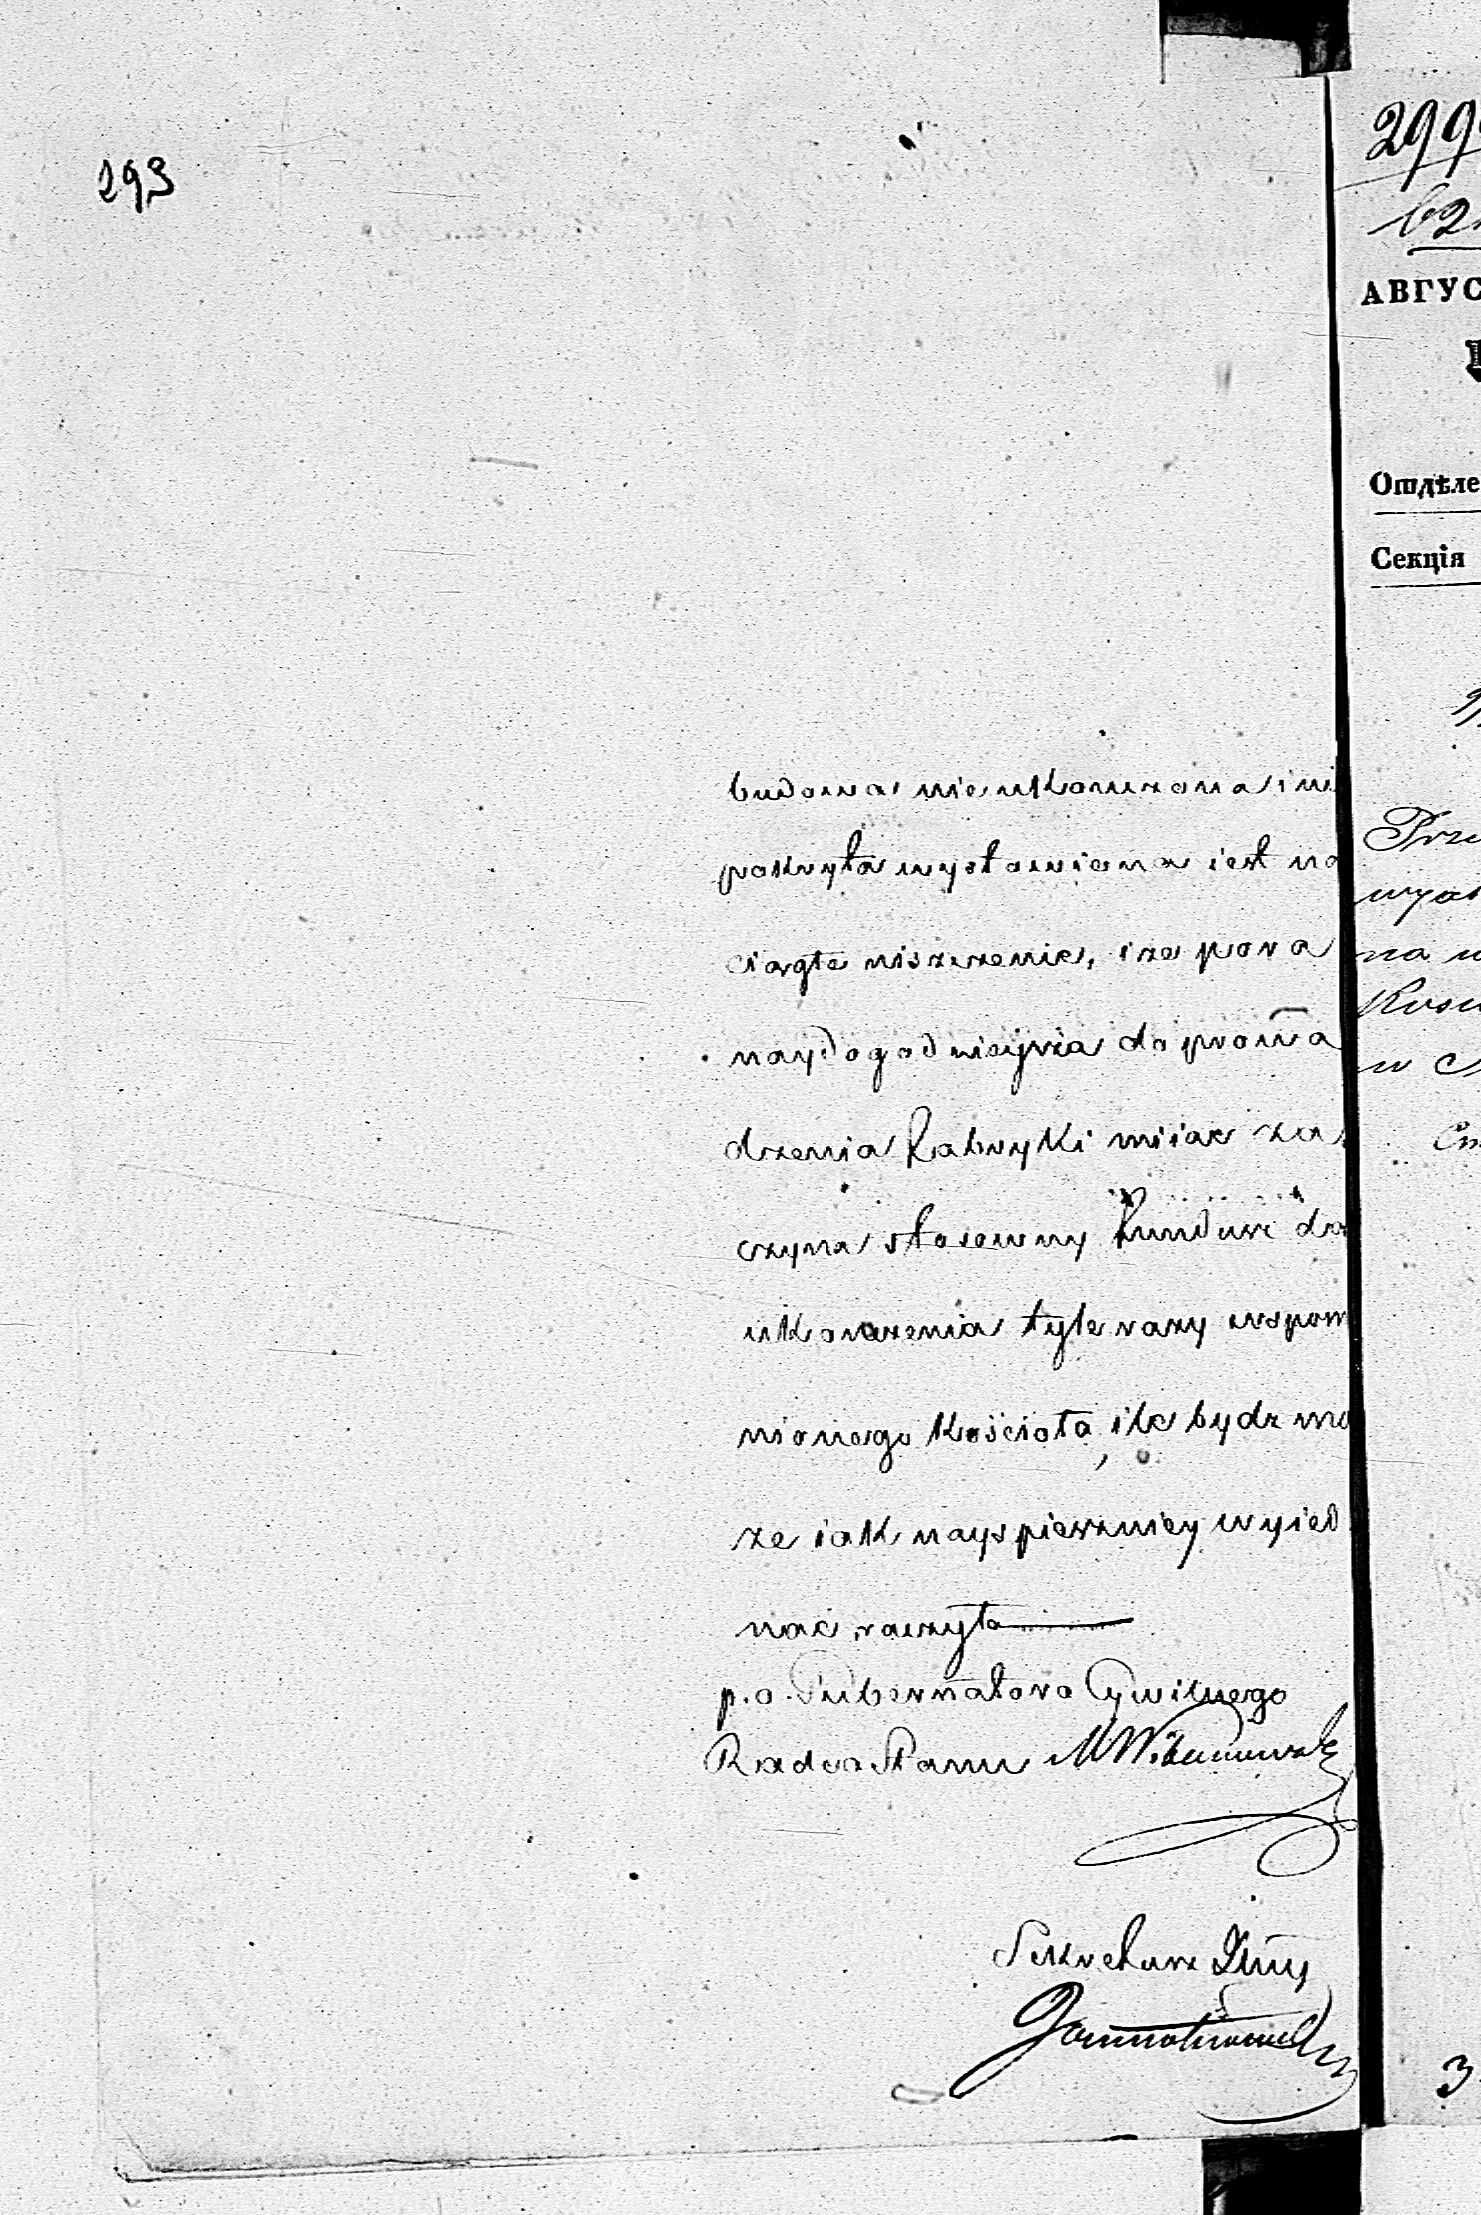 293
budowa nieukonczona i ni
pokryta wystawiona iest na
ciągłe niszczenie, i że pora
naydogodnieysza do prowa
dzenia fabryki miiać za
czyna stosowny fundusz do
ukończenia tyle razy wspom
nionego Kościoła, ile bydź mo
że iak nayspieszniey wyied
nać raczyła
p.o. Gubernatora Cywilnego
Radca Stanu
Sekretarz Jlny
299
b2
АВГУС
Отдѣле
Секція
Prze
wyst
na u
Kosc
w
3